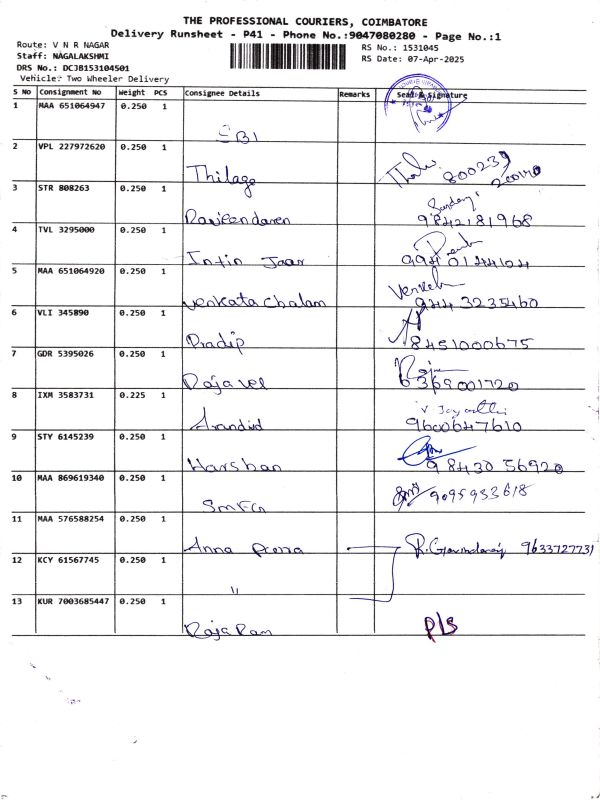 THE PROFESSIONAL COURIERS, COIMBATORE
Delivery Runsheet - P41 - Phone No.:9047080280 - Page No.:1
Route: V N R NAGAR
RS No.: 1531045
Staff: NAGALAKSHMI
RS Date: 07-Apr-2025
DRS No.: DCJB153104501
Vehicle: Two Wheeler Delivery
S No Consignment No Weight PCS Consignee Details Remarks Seal & Signature
1 MAA 651064947 0.250 1
SBI
2 VPL 227972620 0.250 1
Thilage 800239
200140
3 STR 808263 0.250 1
Raveendaren 9842181968
4 TVL 3295000 0.250 1
Infin Jaar 9940144104
5 MAA 651064920 0.250 1 Venkeh
Venkatachalam 9443235460
6 VLI 345890 0.250 1
Pradip 8451000675
7 GDR 5395026 0.250 1 Raju
Rajavel 6369001720
8 IXM 3583731 0.225 1 V Jayanthi
9600647610
9 STY 6145239 0.250 1
Harshan 98430 56920
10 MAA 869619340 0.250 1 9095933618
11 MAA 576588254 0.250 1
Anna R.Govindaraj 9633727731
12 KCY 61567745 0.250 1
"
13 KUR 7003685447 0.250 1
RajaRam Pls